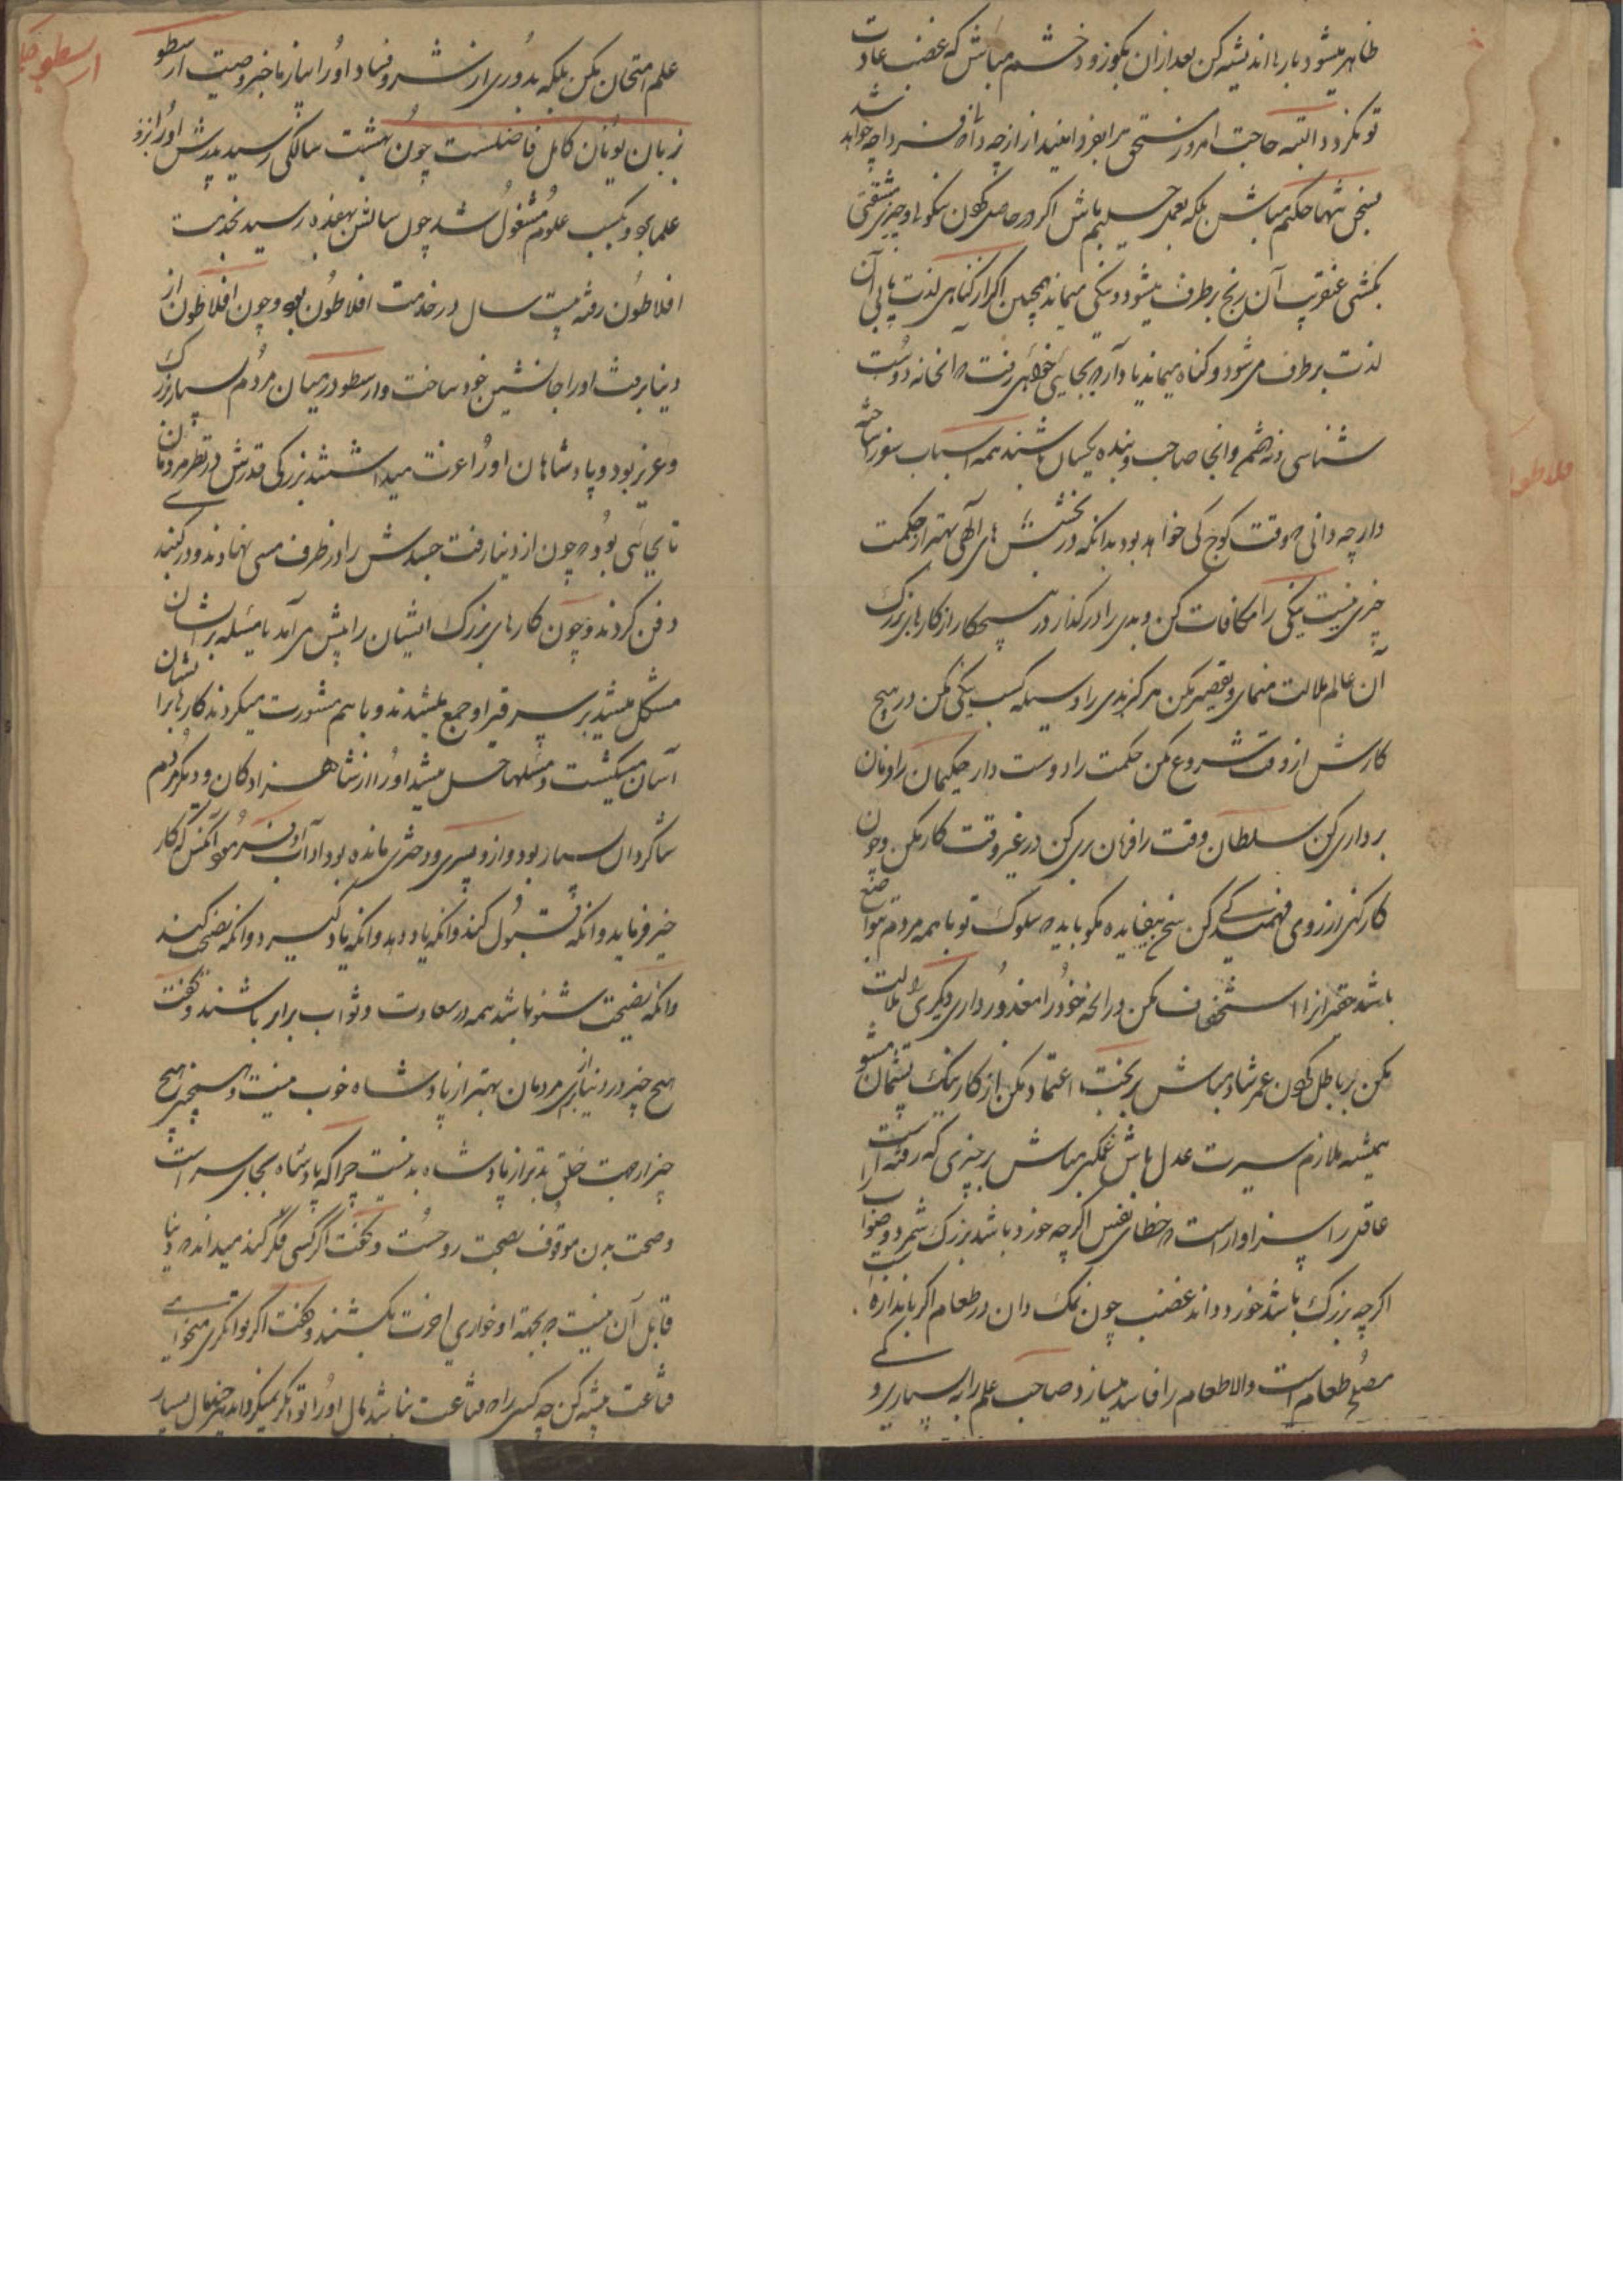 ظاهر میشود بارها اندیشه کن بعد از ان بکو زود خشم مباش که غضب عادت
تو نکردد البته حاجت امروز مستحق را بفردا میندازد از چه دانی که فردا چه خواهد شد
بسخن تنها حکیم مباش بلکه بعمل حکیم باش اکر در حاصل کردن نیکوئی و خیری مشقتی
بکشی عنقریب آن رنج برطرف میشود و نیکی میماند همچنین اکر از کناهی لذت یابی آن
لذت برطرف می شود و کناه میماند یاد آر که بجایی خواهی رفت که انجا نه دوست
شناسی و نه دشمن و انجا صاحب و بنده یکسان باشند همه اسباب سفر ساخته
دار چه دانی که وقت کوچ کی خواهد بود بدانکه در بخشش های الهی بهتر از حکمت
چیزی نیست نیکی را مکافات کن و بدی را در کذار در هیچ کار از کارهای بزرک
آن عالم ملالت منمای و تقصیر مکن هرکز بدی را وسیله کسب نیکی مکن در هیچ
کارش از وقت شروع مکن حکمت را دوست دار حکیمان را فرمان
برداری کن سلطان وقت را فرمان بری کن در غیر وقت کار مکن و چون
کار کنی از روی فهمیدکی کن سخن بیفایده مکو باید که سلوک تو با همه مردم بتواضع
باشد حقیران را استخفاف مکن در انچه خود را معذور داری دیکری را ملامت
مکن بر باطل کردن عمر شاد مباش بر بخت اعتماد مکن از کار نیک پشیمان مشو
همیشه ملازم سیرت عدل باش غمکین مباش بر چیزی که رفته است
عاقل را سزاوار است که خطای نفس اکرچه خورد باشد بزرک شمرد و صواب
اکرچه بزرک باشد خورد داند غضب چون نمک دان در طعام اکر باندازه است
مصلح طعام است والا طعام را فاسد میسازد صاحب علم را به بسیاری
علم امتحان مکن بلکه بدوری از شر و فساد او را بیازما خبر وصیت ارسطو
زبان یونان کامل فاضلست چون بهشت سالکی رسید پدرش او را نزد
علما برد و بکسب علوم مشغول شد چون سالش بهفده رسید بخدمت
افلاطون رفته بیست سال در خدمت افلاطون بود و چون افلاطون از
دنیا برفت او را جانشین خود ساخت و ارسطو در میان مردم بسیار بزرک
و عزیز بود و پادشاهان او را عزت میداشتند بزرکی قدرش در نظر مردمان
تا بجائی بود که چون از دنیا رفت جسدش را در ظرف مسی نهادند و در کنبد
دفن کردند و چون کارهای بزرک ایشان را پیش می آمد یا مسئله بر ایشان
مشکل میشد بر سر قبر او جمع میشدند و با هم مشورت میکردند کارها بر ایشان
آسان میکشت و مسئلها حل میشد او را از شاهزادکان و دیکر مردم
شاکردان بسیار بود و از و پسری و دختری مانده بود
خیر فرماید و انکه قبول کند و انکه یاد دهد و انکه یاد کیرد و انکه نصیحت کند
و انکه نصیحت شنو باشد همه در سعادت و ثواب برابر باشند و کفت
هیچ چیز در دنیا از برای مردمان بهتر از پادشاه خوب نیست و هیچ
چیز از جهت خلق بدتر از پادشاه بد نیست چرا که پادشاه بجای سر است
و صحت بدن موقوف بصحت روحست و کفت اکر کسی فکر کند میداند که دنیا
قابل آن نیست که بجهة او خواری اخرت بکشند و کفت اکر توانکری میخواهی
قناعت پیشه کن چه کسی را که قناعت نباشد مال او را توانکر نمیکرداند هر چند مال بسیار
ارسطو حکیم